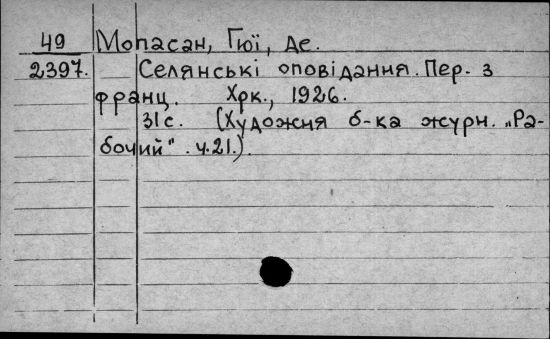 49 Мопасан, Гюї, де.
2397. Селянські оповідання. Пер. з
франц. Хрк., 1926.
31 с. (Художня б-ка журн. „Ра-
бочий" . ч.21.).